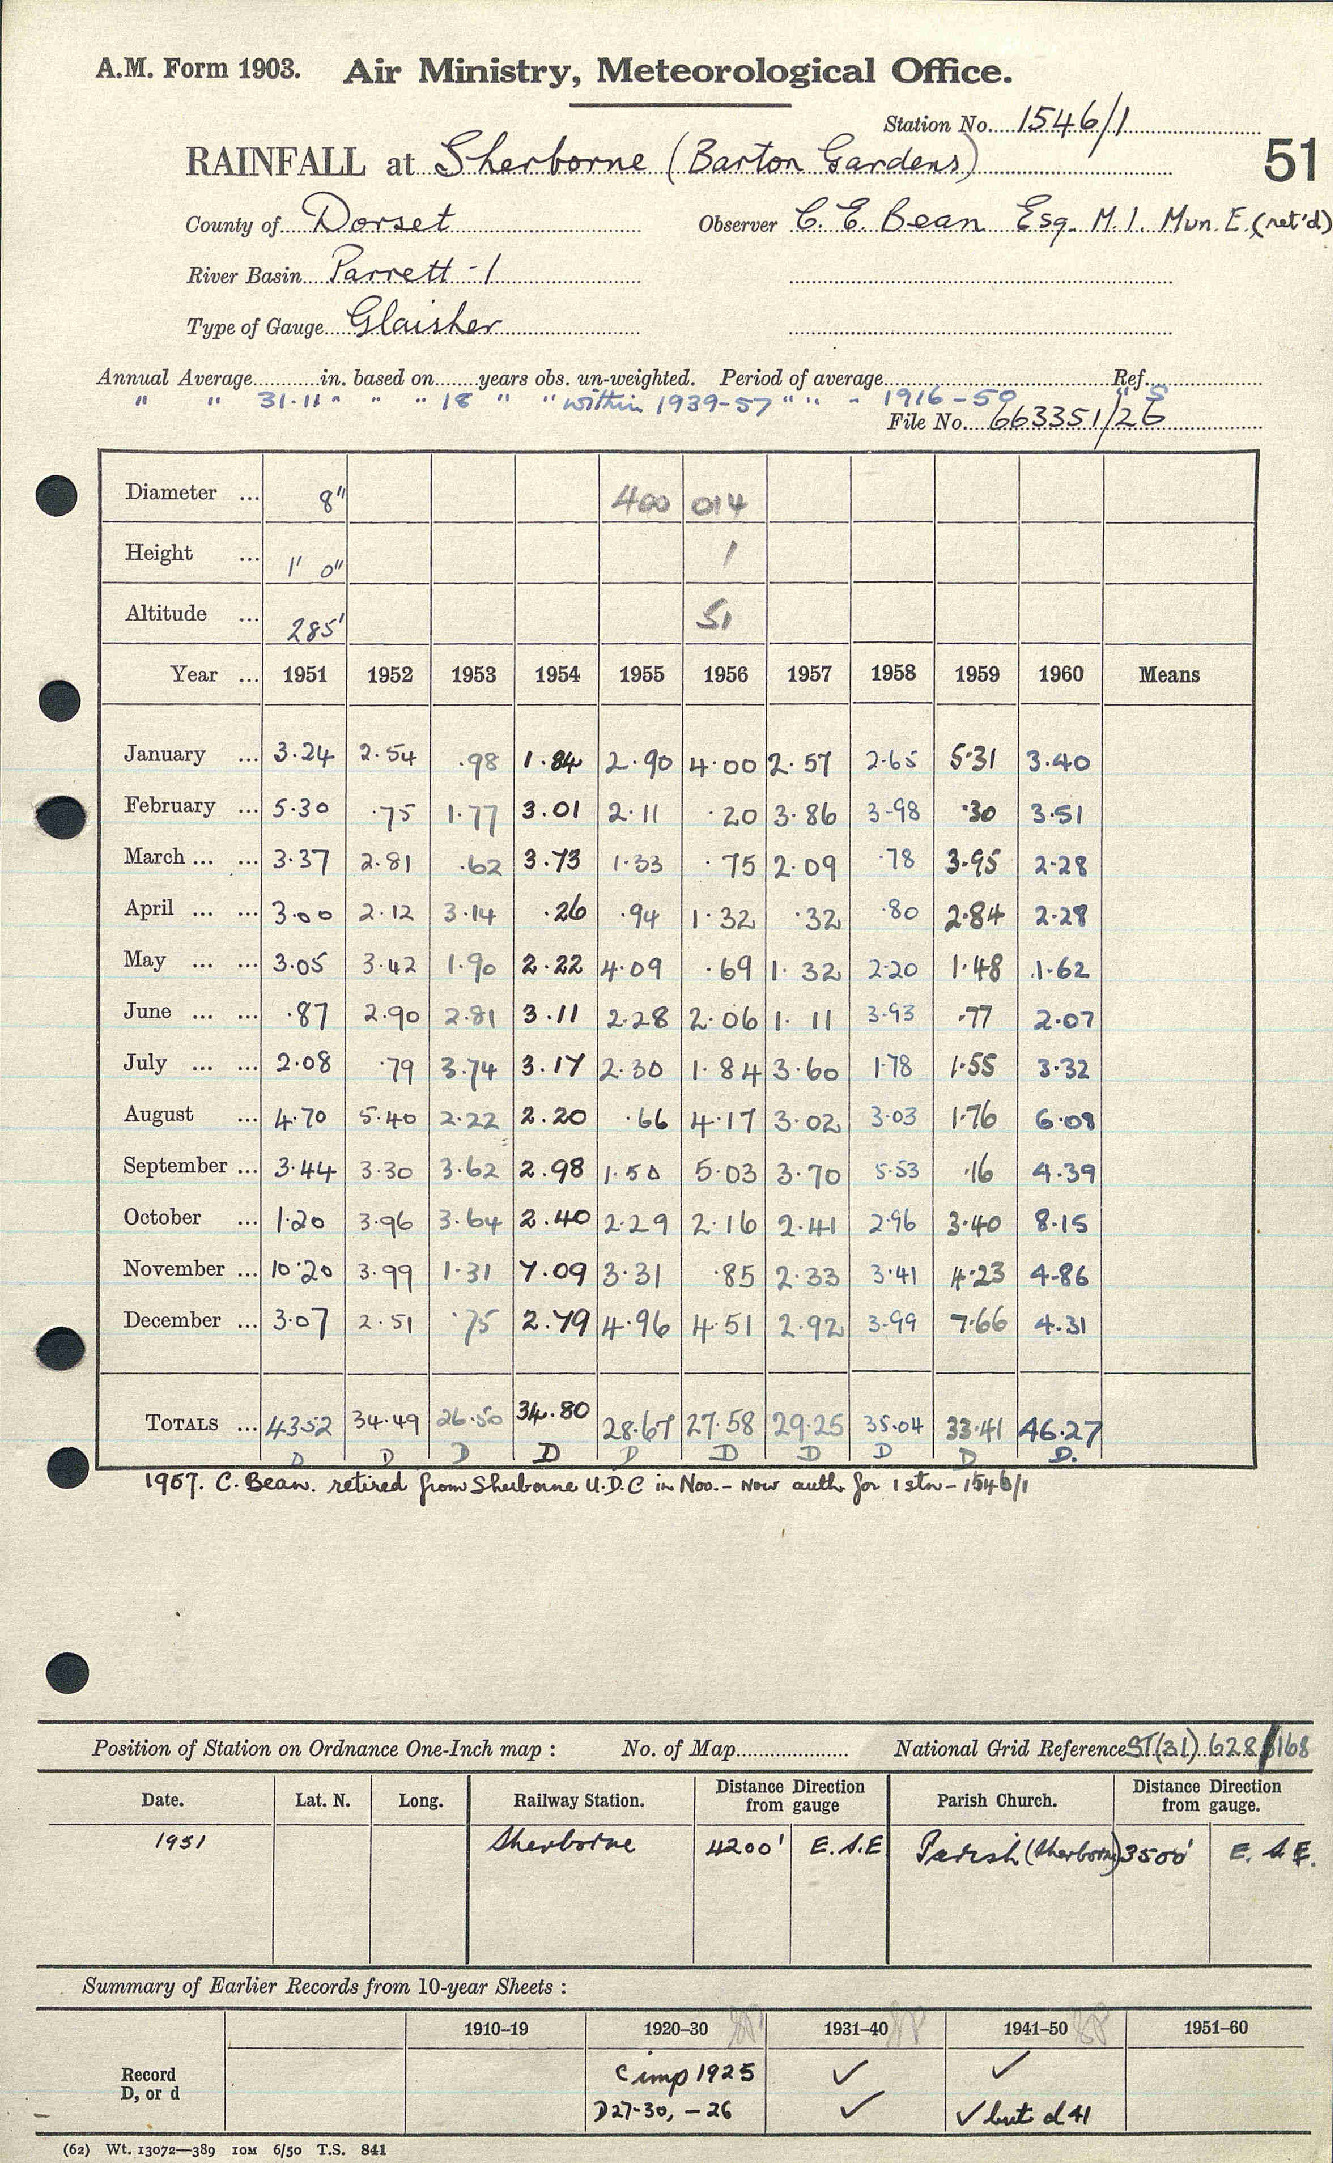 A.M. Form 1903. Air Ministry, Meteorological Office.
Station No. 1546/1
51
RAINFALL at Sherborne (Barton Gardens)
County of Dorset Observer C. E. Bean Esq. M.I. Mun. E. (ret'd)
River Basin Parrett - 1
Type of Gauge Glaisher
Annual Average in. based on years obs. un-weighted. Period of average Ref.
" " 31.11 " " " 18 " " within 1939-57 " " " 1916-50 " S
File No. 663351/26
Diameter ... 8" 400 014
Height ... 1' 0" 1
Altitude ... 285' 51
Year ... 1951 1952 1953 1954 1955 1956 1957 1958 1959 1960 Means
January ... 3.24 2.54 .98 1.84 2.90 4.00 2.57 2.65 5.31 3.40
February ... 5.30 .75 1.77 3.01 2.11 .20 3.86 3.98 .30 3.51
March ... ... 3.37 2.81 .62 3.73 1.33 .75 2.09 .78 3.95 2.28
April ... ... 3.00 2.12 3.14 .26 .94 1.32 .32 .80 2.84 2.28
May ... ... 3.05 3.42 1.90 2.22 4.09 .69 1.32 2.20 1.48 1.62
June ... ... .87 2.90 2.81 3.11 2.28 2.06 1.11 3.93 .77 2.07
July ... ... 2.08 .79 3.74 3.17 2.30 1.84 3.60 1.78 1.55 3.32
August ... 4.70 5.40 2.22 2.20 .66 4.17 3.02 3.03 1.76 6.08
September ... 3.44 3.30 3.62 2.98 1.50 5.03 3.70 5.53 .16 4.39
October ... 1.20 3.96 3.64 2.40 2.29 2.16 2.41 2.96 3.40 8.15
November ... 10.20 3.99 1.31 7.09 3.31 .85 2.33 3.41 4.23 4.86
December ... 3.07 2.51 .75 2.79 4.96 4.51 2.92 3.99 7.66 4.31
TOTALS ... 43.52 34.49 26.50 34.80 28.67 27.58 29.25 35.04 33.41 46.27
D D D D D D D D D D.
1957. C. Bean. retired from Sherborne U.D.C in Nov. - Now auth. for 1 stn - 1546/1
Position of Station on Ordnance One-Inch map : No. of Map National Grid Reference ST(31) 628/168
Date. Lat. N. Long. Railway Station. Distance Direction from gauge Parish Church. Distance Direction from gauge.
1951 Sherborne 4200' E.S.E Parish (Sherborne) 3500' E. S E.
Summary of Earlier Records from 10-year Sheets :
1910–19 1920–30 1931–40 1941–50 1951–60
Record D, or d
c imp 1925 ✓ ✓
D27-30, - 26 ✓ ✓ but d 41
(62) Wt. 13072—389 10M 6/50 T.S. 841